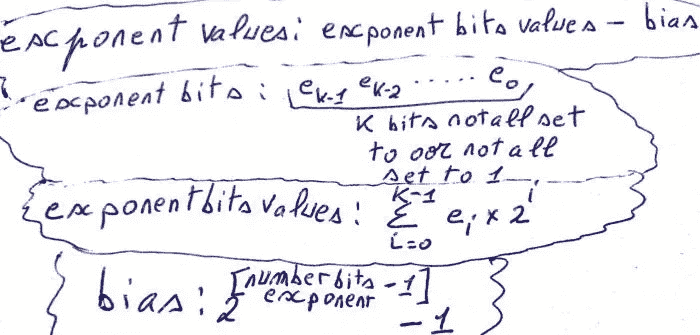 exponent values: exponent bits values - bias
exponent bits: e_{k-1} e_{k-2} ..... e_0
K bits not all set
to 0 or not all
set to 1
exponent bits values: \sum_{i=0}^{K-1} e_i × 2^i
bias: 2^{[number bits exponent - 1]} - 1